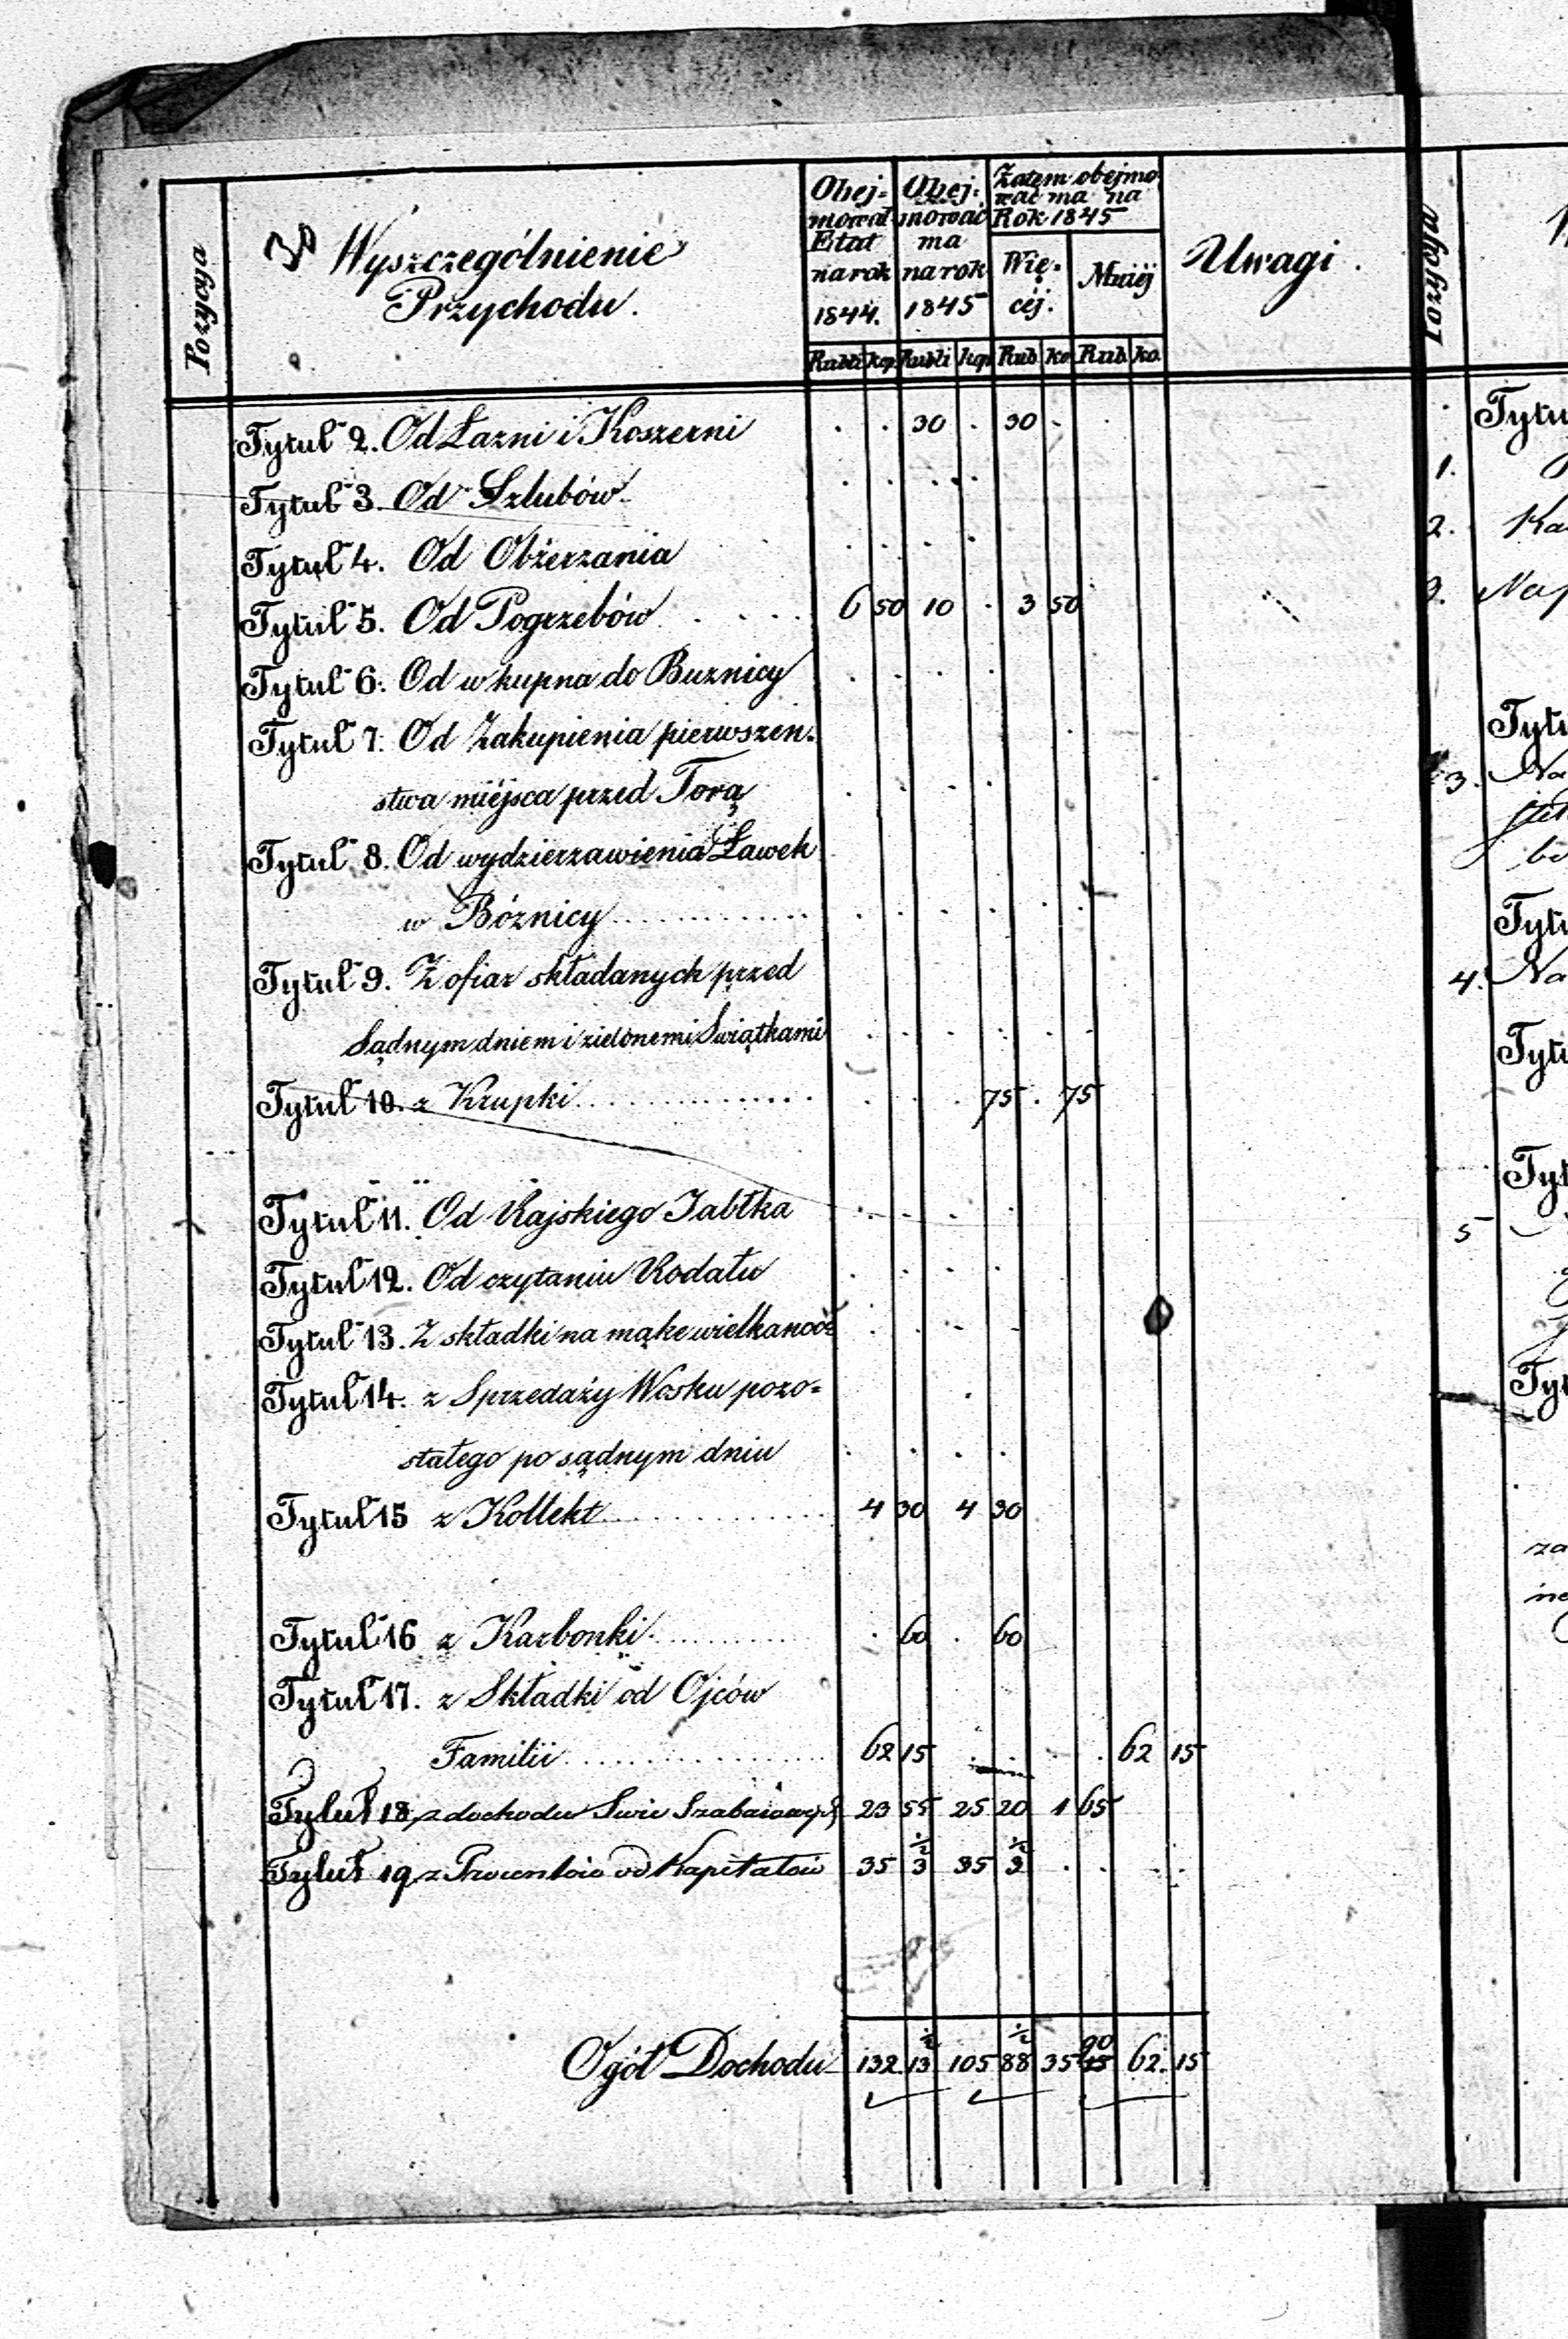 Pozycya
Wyszczególnienie
Przychodu.
Obej=
mował
Etat
na rok
1844.
Obej=
mować
ma
na rok
1845
Zatem obejmo
wać ma na
Rok 1845
Wię=
céj.
Mniéj
Uwagi.
Rubli kop Rubli kop Rub ko Rub ko.
Tytuł 2. Od Łazni i Koszerni . . 30 . 30 .
Tytuł 3. Od Szlubów
Tytuł 4. Od Obżerzania
Tytuł 5. Od Pogrzebów 6 50 10 . 3 50
Tytuł 6. Od wkupna do Buznicy
Tytuł 7. Od Zakupienia pierwszen=
stwa miéjsca przed Torą
Tytuł 8. Od wydzierzawienia Ławek
w Bóznicy
Tytuł 9. Z ofiar składanych przed
Sądnym dniem i zielonemi Swiątkami
Tytuł 10. z Krupki . . . 75 . 75
Tytuł 11. Od Rajskiego Jabłka
Tytuł 12. Od czytaniu Rodału
Tytuł 13. Z składki na mąke wielkanoc
Tytuł 14. z Sprzedaży Wosku pozo=
stałego po sądnym dniu
Tytuł 15 z Kollekt 4 30 4 30
Tytuł 16 z Karbonki . 60 . 60
Tytuł 17. z Składki od Ojców
Familii 62 15 . . . . 62 15
Tytuł 18, z dochodu Swie Szabasowych 23 55 25 20 1 65
Tytuł 19 z Procentów od Kapitałów 35 3 ½ 35 3 ½ . .
Ogół Dochodu 132. 13 ½ 105 88 ½ 35 90 62. 15
Pozycya
Tytu
1.
2. Ka
3. Na
Tytu
3. Na
be
Tytu
4. Na
Tytu
Tyt
5
Tyt
za